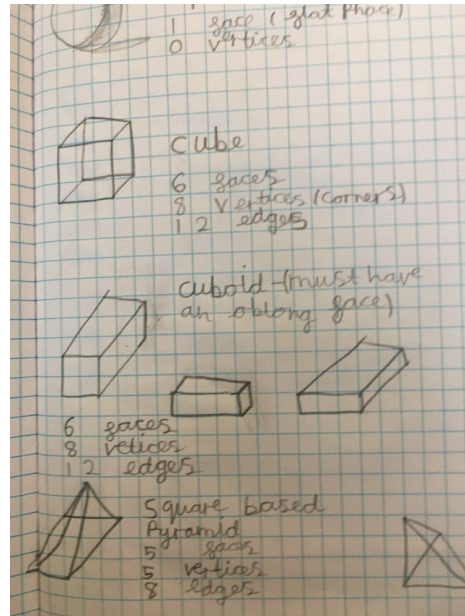 1 face (flat phace)
0 vertices
cube
6 faces
8 vertices (corners)
12 edges
cuboid - (must have
an oblong face)
6 faces
8 vetices
12 edges
Square based
Pyramid
5 faces
5 vertices
8 edges